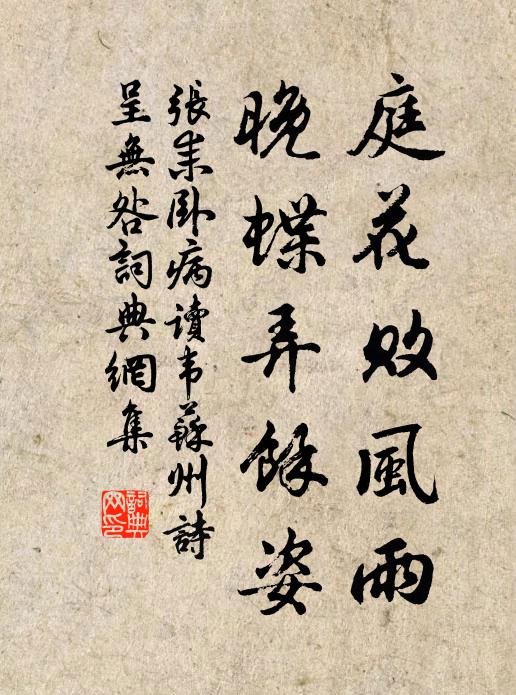 庭花敗風雨
晚蝶弄餘姿
張耒卧病讀韋蘇州詩
呈無咎詞典網集
詞典
网印